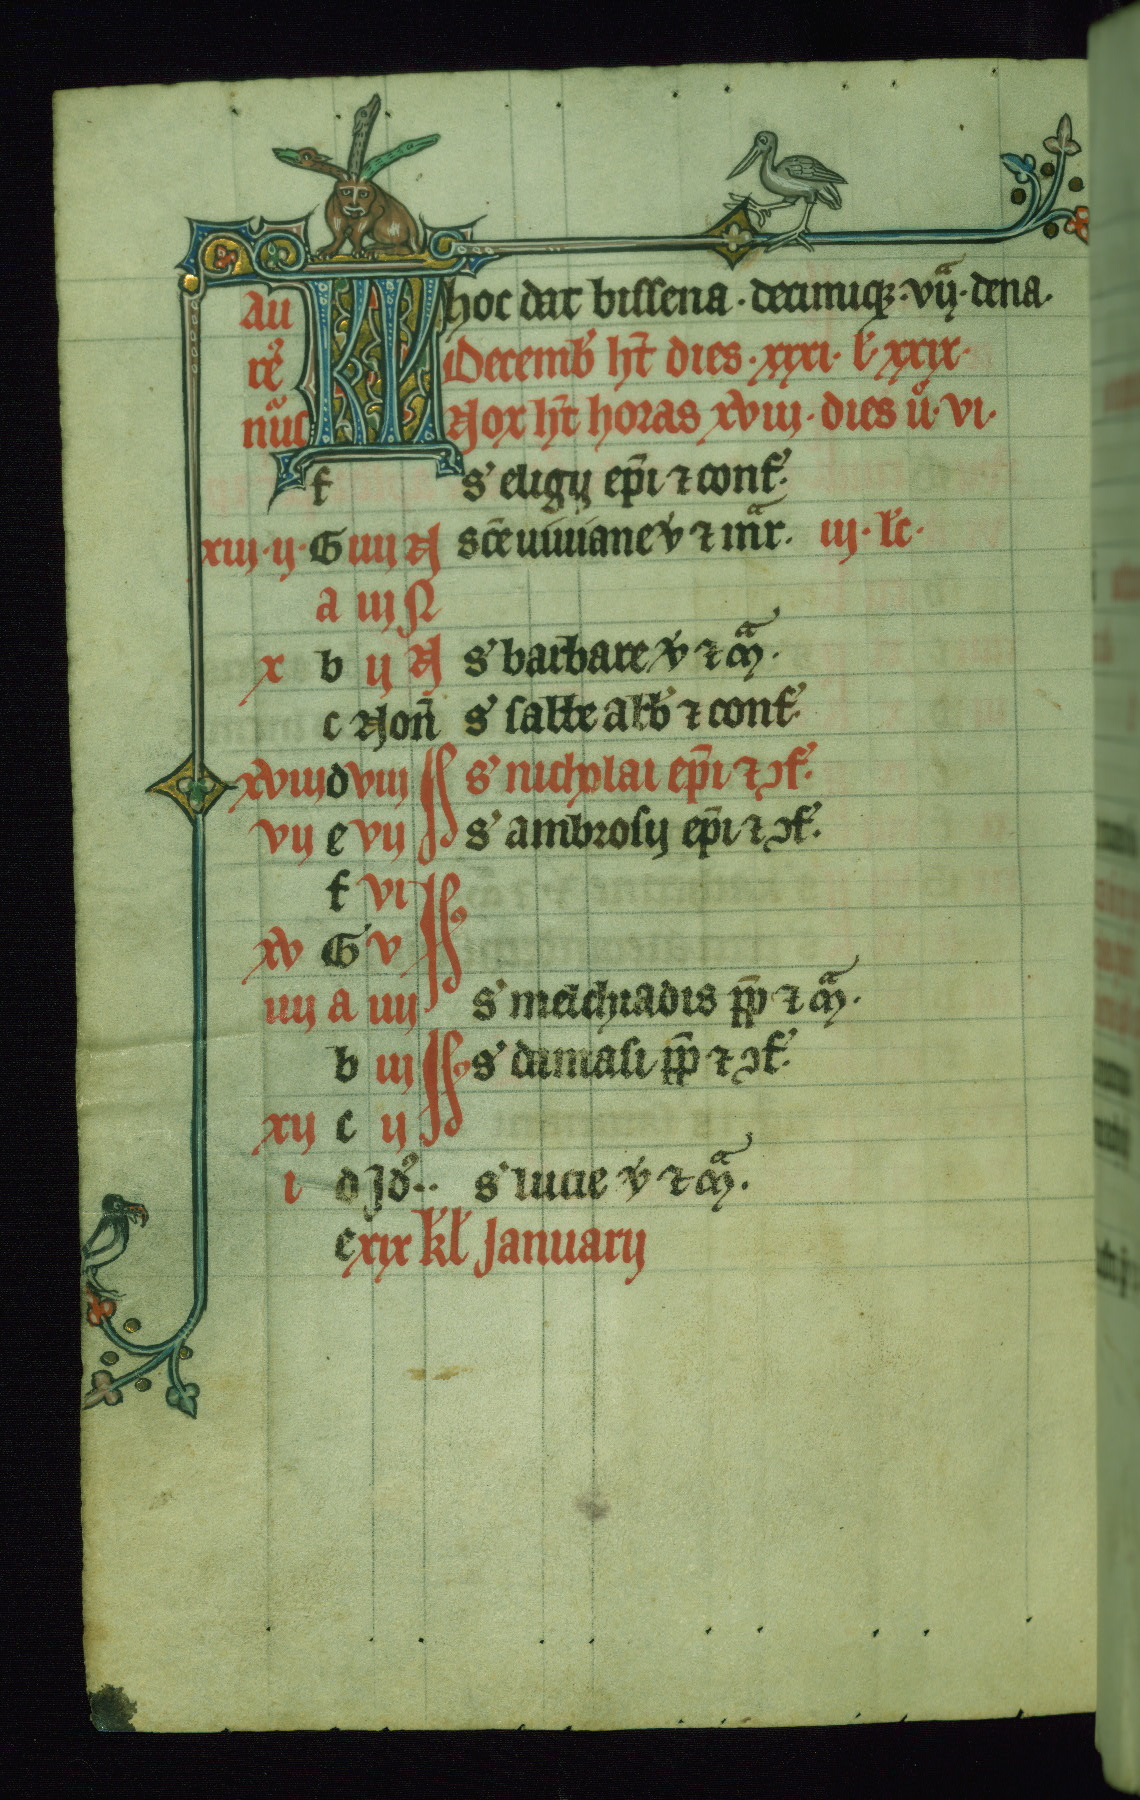 Au KL hoc dat bissena · decimusq; · vij^a · dena ·
re᷒ Decemb̛ ht̄ dies · xxxi · l̛ · xxix ·
nūs Nox ht̄ horas xviii · dies ů · vi ·
f s̛ eligij ep̄i ⁊ conf̛ ·
xiii · ij · G iiii N sc̄e uiuiane v̛ ⁊ mar̛ · iij · lc̄ ·
a iij N
x b ij N s̛ barbare v̛ ⁊ m̄ ·
c Non̄ s̛ sabbe abb̛ ⁊ conf̛ ·
xviii d viii s̛ nicholai ep̄i ⁊ ↄf̛ ·
vij e vij s̛ ambrosij ep̄i ⁊ ↄf̛ ·
f vi
xv G v
iiij a iiij s̛ melchiadis pp̄ ⁊ m̄ ·
b iij s̛ damasi pp̄ ⁊ ↄf̛ ·
xij c ij
i d Jd̛ · · s̛ lucie v̛ ⁊ m̄ ·
e xix kl̛ Januarij